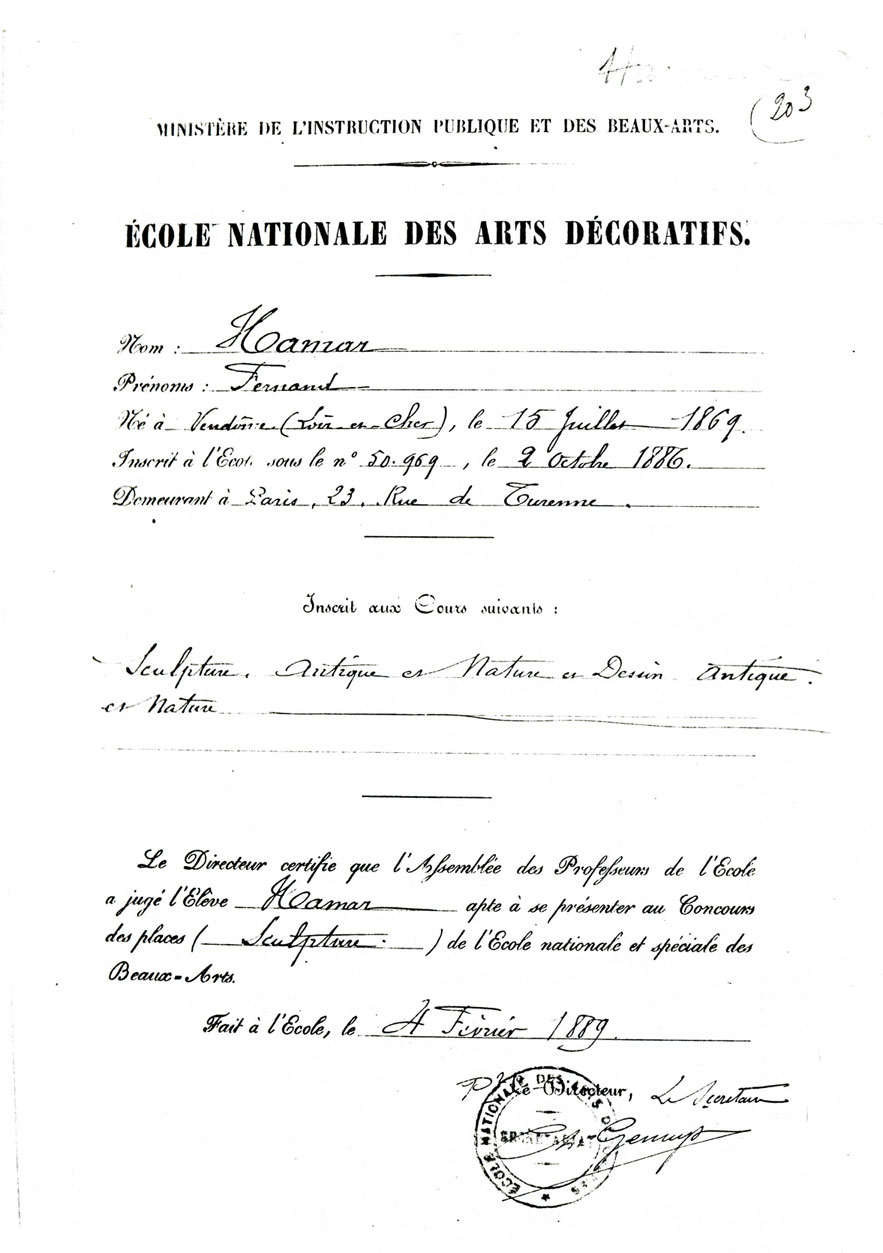 (203
MINISTÈRE DE L'INSTRUCTION PUBLIQUE ET DES BEAUX-ARTS.
ÉCOLE NATIONALE DES ARTS DÉCORATIFS.
Nom : Hamar
Prénoms : Fernand
Né à Vendôme (Loir-et-Cher), le 15 Juillet 1869.
Inscrit à l'Ecole sous le n° 50.969, le 2 Octobre 1886.
Demeurant à Paris, 23, Rue de Turenne.
Inscrit aux Cours suivants :
Sculpture, Antique et Nature et Dessin Antique
et Nature
Le Directeur certifie que l'Assemblée des Professeurs de l'Ecole
a jugé l'Elève Hamar apte à se présenter au Concours
des places (Sculpture) de l'Ecole nationale et spéciale des
Beaux-Arts.
Fait à l'Ecole, le 4 Février 1889.
Le Directeur, Le Secrétaire
ÉCOLE NATIONALE DES ARTS DÉCORATIFS
SECRÉTARIAT